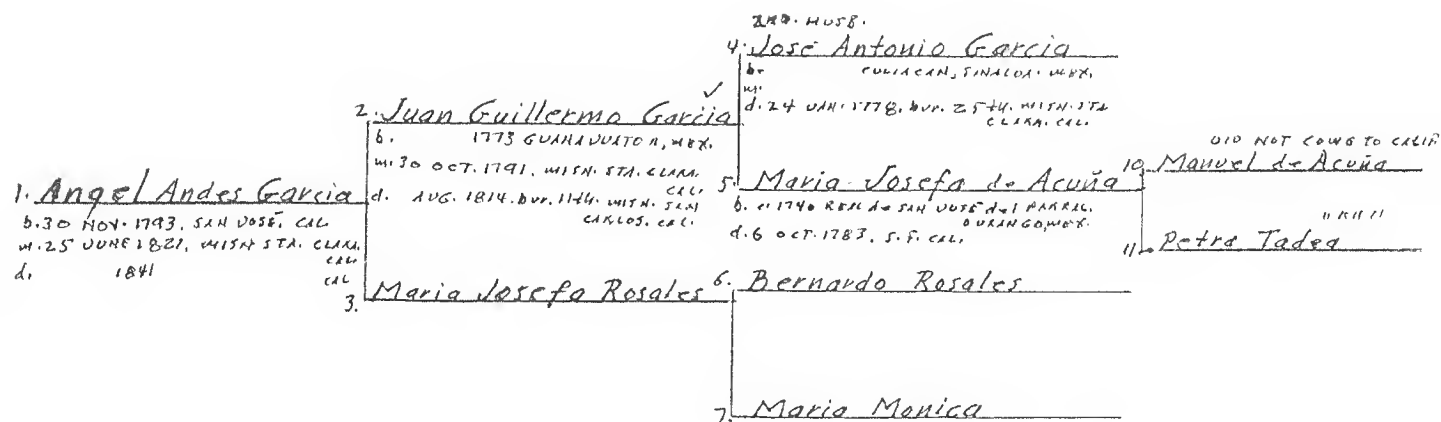 1. Angel Andes Garcia
b. 30 NOV. 1793, SAN JOSÉ, CAL
m. 25 JUNE 1821, MISN STA. CLARA, CAL.
d. 1841 CAL
2. Juan Guillermo Garcia ✓
b. 1773 GUANAJUATO, MEX.
m. 30 OCT. 1791, MISN. STA. CLARA, CAL.
d. AUG. 1814. bur. 11th. MISN. SAN CARLOS, CAL.
3. Maria Josefa Rosales
2ND. HUSB.
4. José Antonio Garcia
b. CULIACAN, SINALOA. MEX.
m.
d. 24 JAN. 1778, bur. 25th. MISN. STA CLARA, CAL.
5. Maria Josefa de Acuña
b. c. 1740 REAL de SAN JOSÉ del PARRAL, DURANGO, MEX.
d. 6 OCT. 1783, S.F. CAL,
6. Bernardo Rosales
7. Maria Monica
DID NOT COME TO CALIF
10. Manuel de Acuña
" " " "
11. Petra Tadea